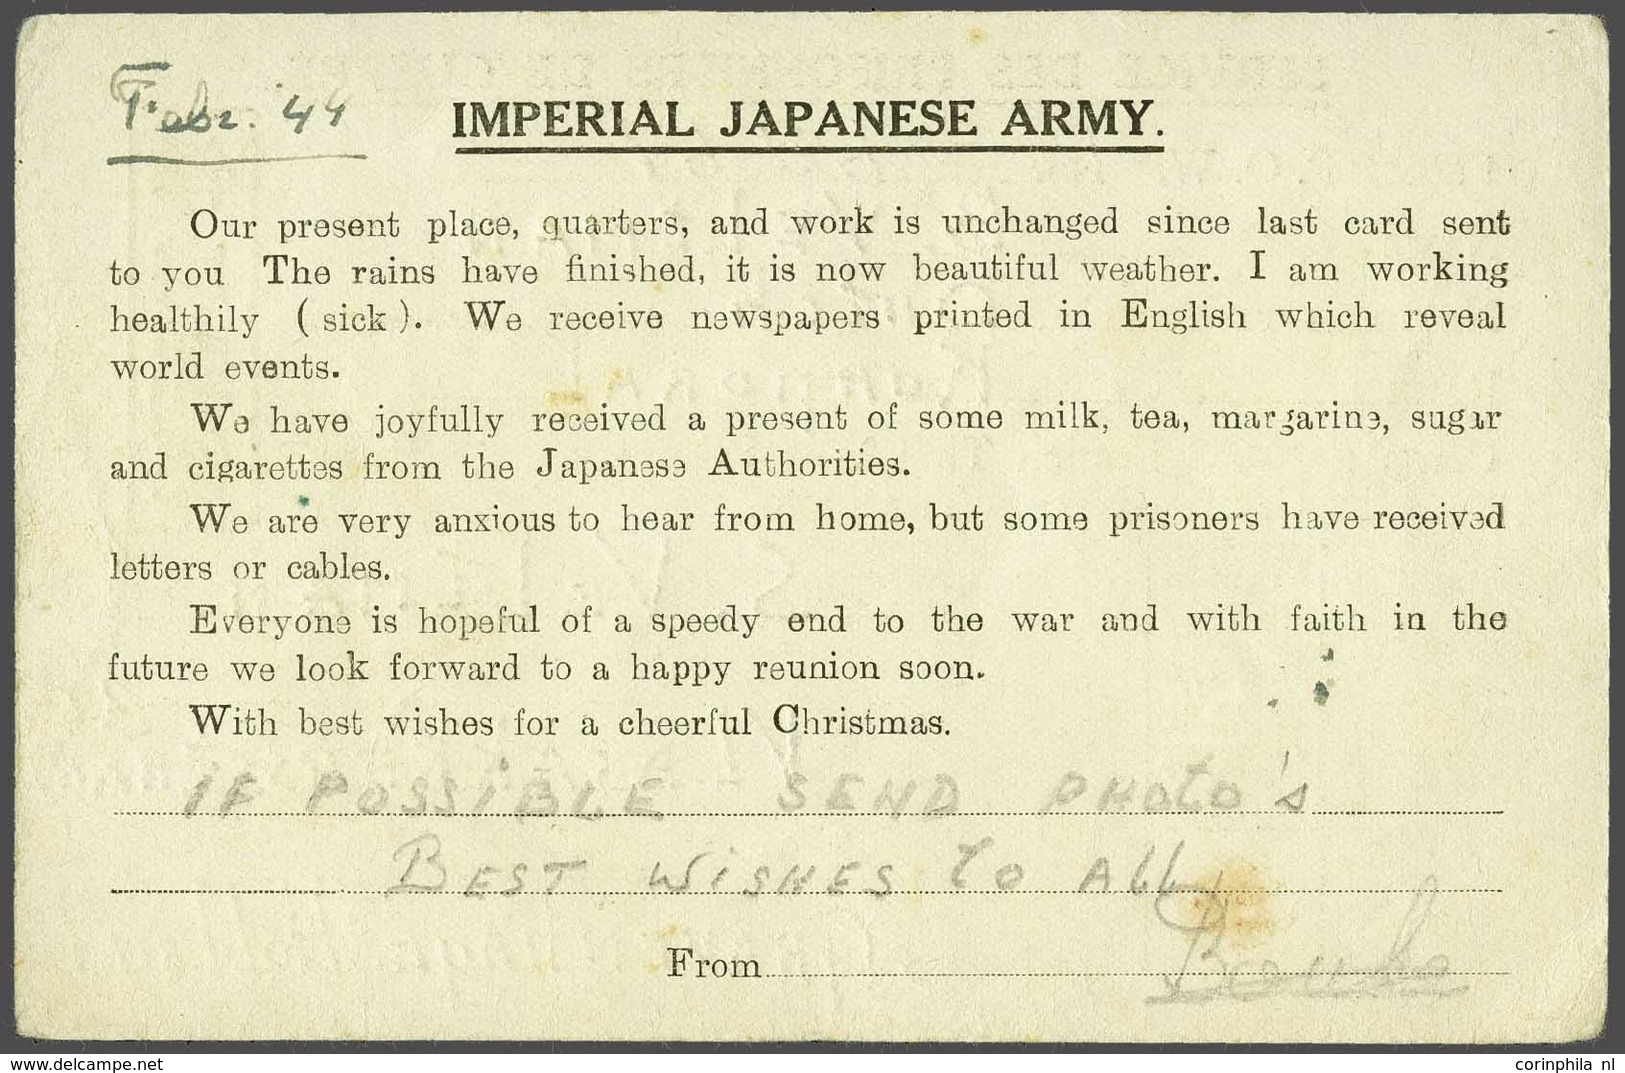 Febr. '44
IMPERIAL JAPANESE ARMY.
Our present place, quarters, and work is unchanged since last card sent
to you The rains have finished, it is now beautiful weather. I am working
healthily ( sick ). We receive newspapers printed in English which reveal
world events.
We have joyfully received a present of some milk, tea, margarine, sugar
and cigarettes from the Japanese Authorities.
We are very anxious to hear from home, but some prisoners have received
letters or cables.
Everyone is hopeful of a speedy end to the war and with faith in the
future we look forward to a happy reunion soon.
With best wishes for a cheerful Christmas.
IF POSSIBLE SEND PHOTO'S
BEST WISHES TO ALL
From
Delcampe.net
corinphila nl